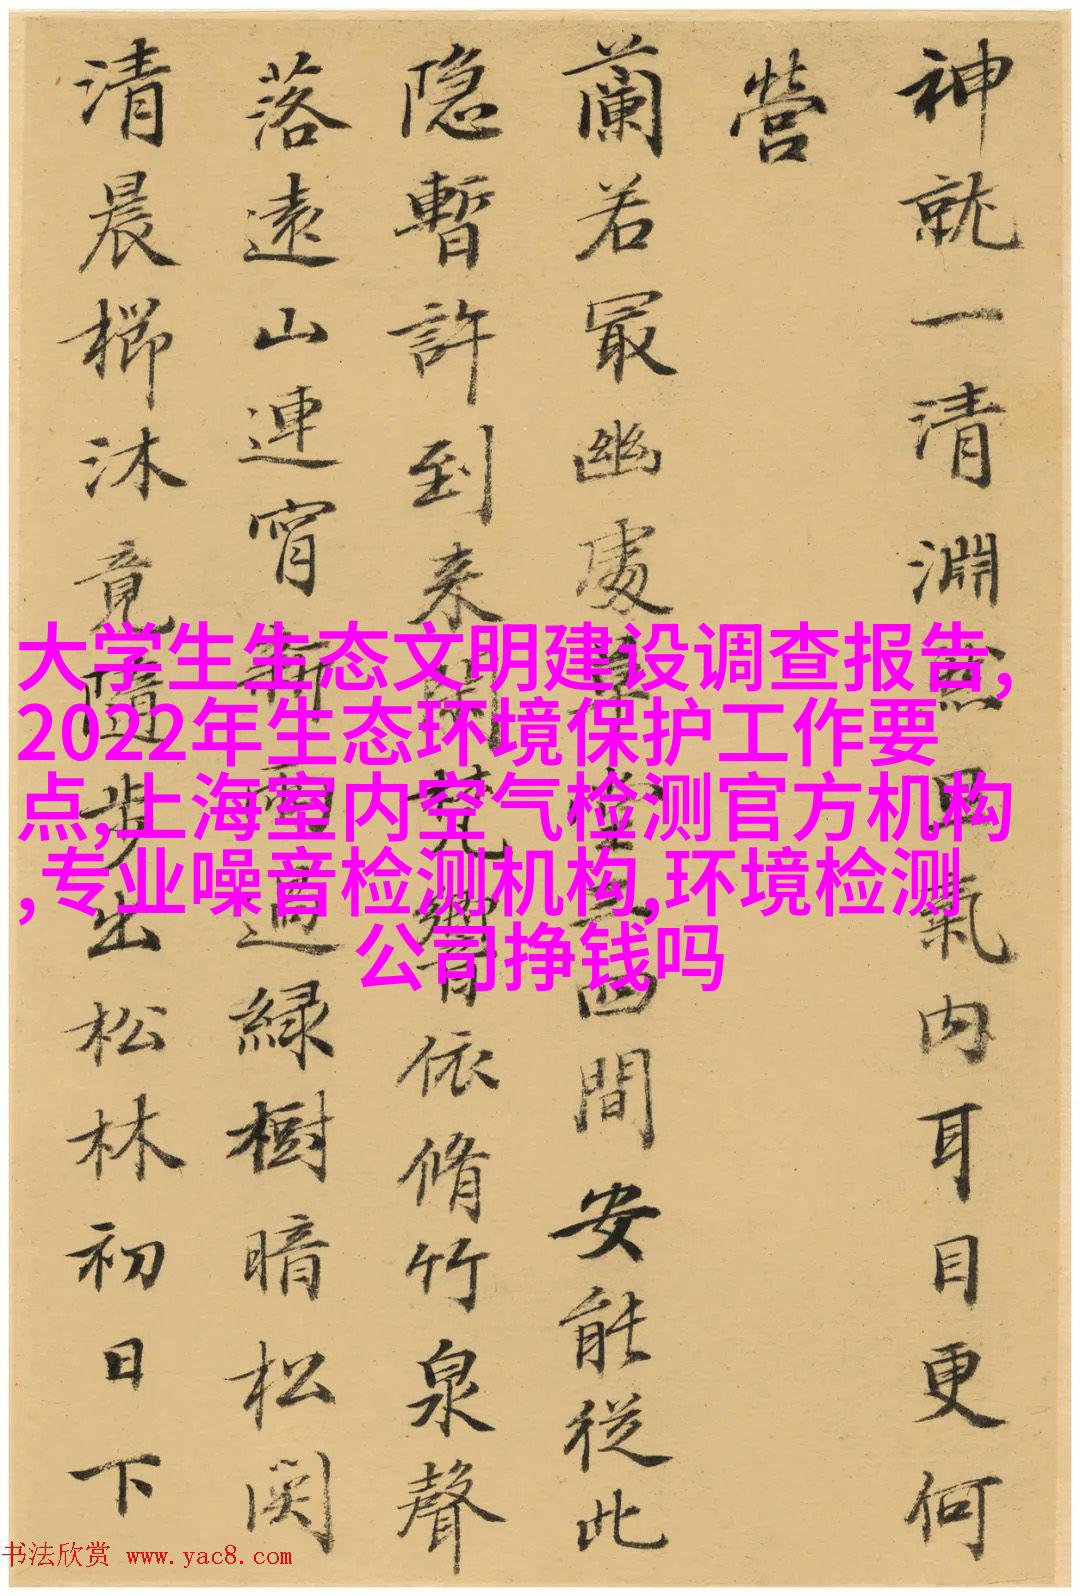 神就一清淵氣内耳目更何
營
蘭若冣幽處草堂三四間安能從此
隐暫許到来閑梵響依脩竹泉聲
落遠山連宵新雨過緑樹暗松関
清晨櫛沐竟隨步出松林初日下
大学生生态文明建设调查报告,
2022年生态环境保护工作要
点,上海室内空气检测官方机构
,专业噪音检测机构,环境检测
公司挣钱吗
书法欣赏 www.yac8.com